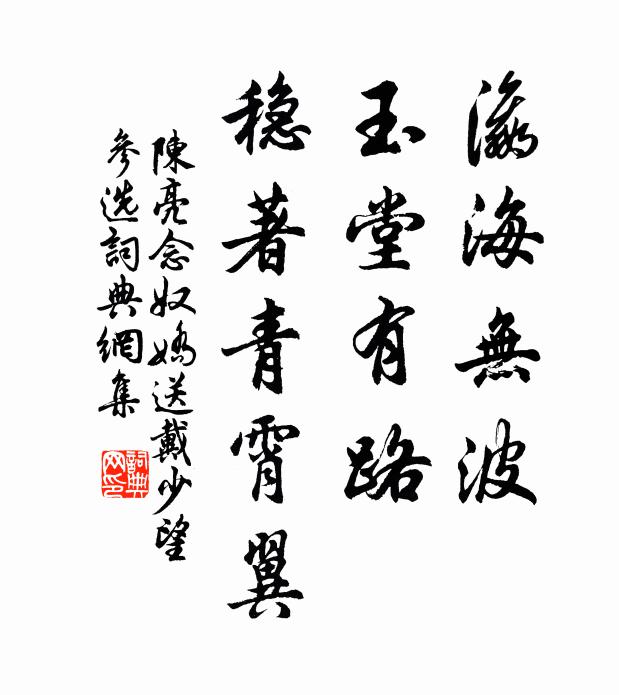 瀛海無波
玉堂有路
稳著青霄翼
陳亮念奴嬌送戴少望
參选詞典網集
詞典网印